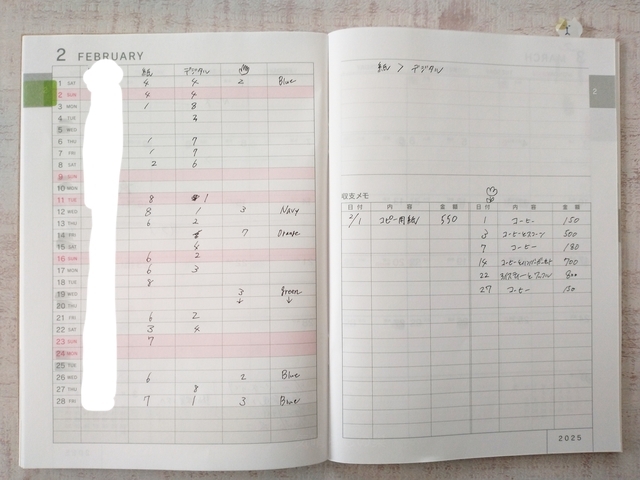 2 FEBRUARY
紙 デジタル
1 SAT 4 4 2 Blue
2 SUN 4 4
3 MON 1 8
4 TUE 3
5 WED
6 THU 1 7
7 FRI 1 7
8 SAT 2 6
9 SUN
10 MON
11 TUE 8 1
12 WED 8 1 3 Navy
13 THU 6 2
14 FRI 7 Orange
15 SAT 4
16 SUN 6 2
17 MON 6 3
18 TUE 8
19 WED 3 Green
20 THU ↓ ↓
21 FRI 6 2
22 SAT 3 4
23 SUN 7
24 MON
25 TUE
26 WED 6 2 Blue
27 THU 8
28 FRI 7 1 3 Blue
紙 > デジタル
2
収支メモ
日付 内容 金額 日付 内容 金額
2/1 コピー用紙 550 1 コーヒー 150
3 コーヒーとスコーン 500
7 コーヒー 180
14 700
22 800
27 コーヒー 150
2025